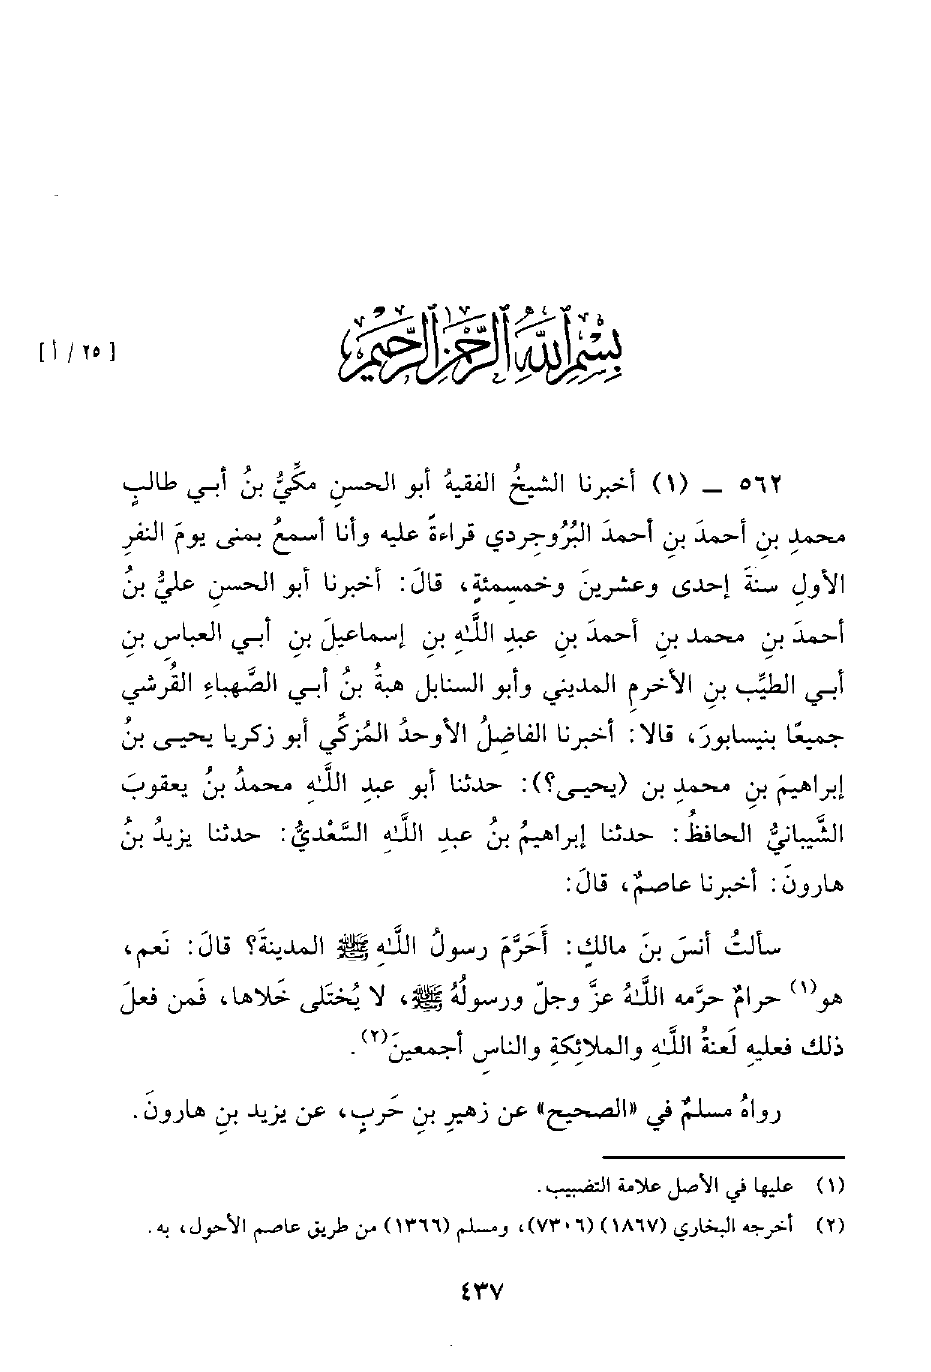 بِسْمِ اللَّهِ الرَّحْمَنِ الرَّحِيمِ
[٢٥ / أ]
٥٦٢ ـ (١) أخبرنا الشيخُ الفقيهُ أبو الحسنِ مكِّيُّ بنُ أبي طالبٍ
محمدِ بنِ أحمدَ بنِ أحمدَ البُرُوجردي قراءةً عليه وأنا أسمعُ بمنى يومَ النفرِ
الأولِ سنةَ إحدى وعشرينَ وخمسمئةٍ، قالَ: أخبرنا أبو الحسنِ عليُّ بنُ
أحمدَ بنِ محمد بنِ أحمدَ بنِ عبدِ اللَّهِ بنِ إسماعيلَ بنِ أبي العباسِ بنِ
أبي الطيِّب بنِ الأخرمِ المديني وأبو السنابل هبةُ بنُ أبي الصَّهباءِ القُرشي
جميعًا بنيسابورَ، قالا: أخبرنا الفاضلُ الأوحدُ المُزكَّي أبو زكريا يحيى بنُ
إبراهيمَ بنِ محمدِ بن (يحيى؟): حدثنا أبو عبدِ اللَّهِ محمدُ بنُ يعقوبَ
الشَّيبانيُّ الحافظُ: حدثنا إبراهيمُ بنُ عبدِ اللَّهِ السَّعْديُّ: حدثنا يزيدُ بنُ
هارونَ: أخبرنا عاصمٌ، قالَ:
سألتُ أنسَ بنَ مالكٍ: أَحَرَّمَ رسولُ اللَّهِ ﷺ المدينةَ؟ قالَ: نَعم،
هو(١) حرامٌ حرَّمه اللَّهُ عزَّ وجلّ ورسولُهُ ﷺ، لا يُختَلى خَلاها، فَمن فعلَ
ذلك فعليهِ لَعنةُ اللَّهِ والملائِكةِ والناسِ أجمعينَ(٢).
رواهُ مسلمٌ في «الصحيح» عن زهيرِ بنِ حَربٍ، عن يزيد بنِ هارونَ.
(١) عليها في الأصل علامة التضبيب.
(٢) أخرجه البخاري (١٨٦٧) (٧٣٠٦)، ومسلم (١٣٦٦) من طريق عاصم الأحول، به.
٤٣٧